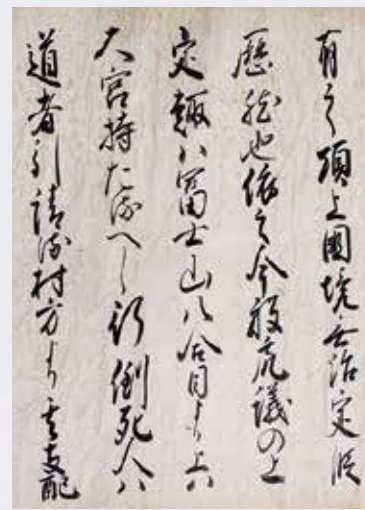 有之頂上國境無治定段
歴然也依之今般衆議の上
定趣ハ冨士山八合目より上ハ
大宮持たるへし行倒死人ハ
道者引請候村方より可支配